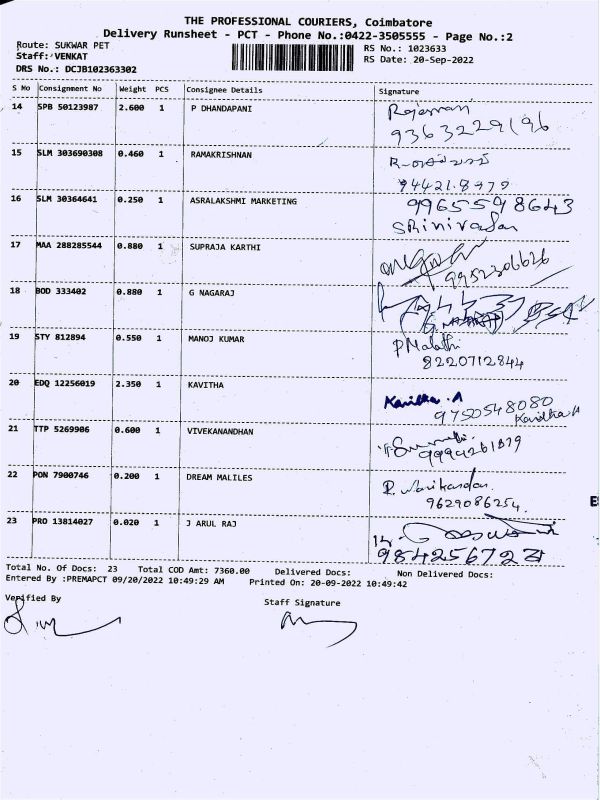 THE PROFESSIONAL COURIERS, Coimbatore
Delivery Runsheet - PCT - Phone No.:0422-3505555 - Page No.:2
Route: SUKWAR PET
RS No.: 1023633
Staff: VENKAT
RS Date: 20-Sep-2022
DRS No.: DCJB102363302
S No Consignment No Weight PCS Consignee Details Signature
14 SPB 50123987 2.600 1 P DHANDAPANI
9363229196
15 SLM 303690308 0.460 1 RAMAKRISHNAN
16 SLM 30364641 0.250 1 ASRALAKSHMI MARKETING 9965598643
SRinivasan
17 MAA 288285544 0.880 1 SUPRAJA KARTHI
9952306626
18 BOD 333402 0.880 1 G NAGARAJ
19 STY 812894 0.550 1 MANOJ KUMAR P Malathi
8220712844
20 EDQ 12256019 2.350 1 KAVITHA Kavitha.A
9750548080
Kavitha A
21 TTP 5269906 0.600 1 VIVEKANANDHAN
22 PON 7900746 0.200 1 DREAM MALILES
9629086254
23 PRO 13814027 0.020 1 J ARUL RAJ
Total No. Of Docs: 23 Total COD Amt: 7360.00 Delivered Docs: Non Delivered Docs:
Entered By :PREMAPCT 09/20/2022 10:49:29 AM Printed On: 20-09-2022 10:49:42
Verified By
Staff Signature